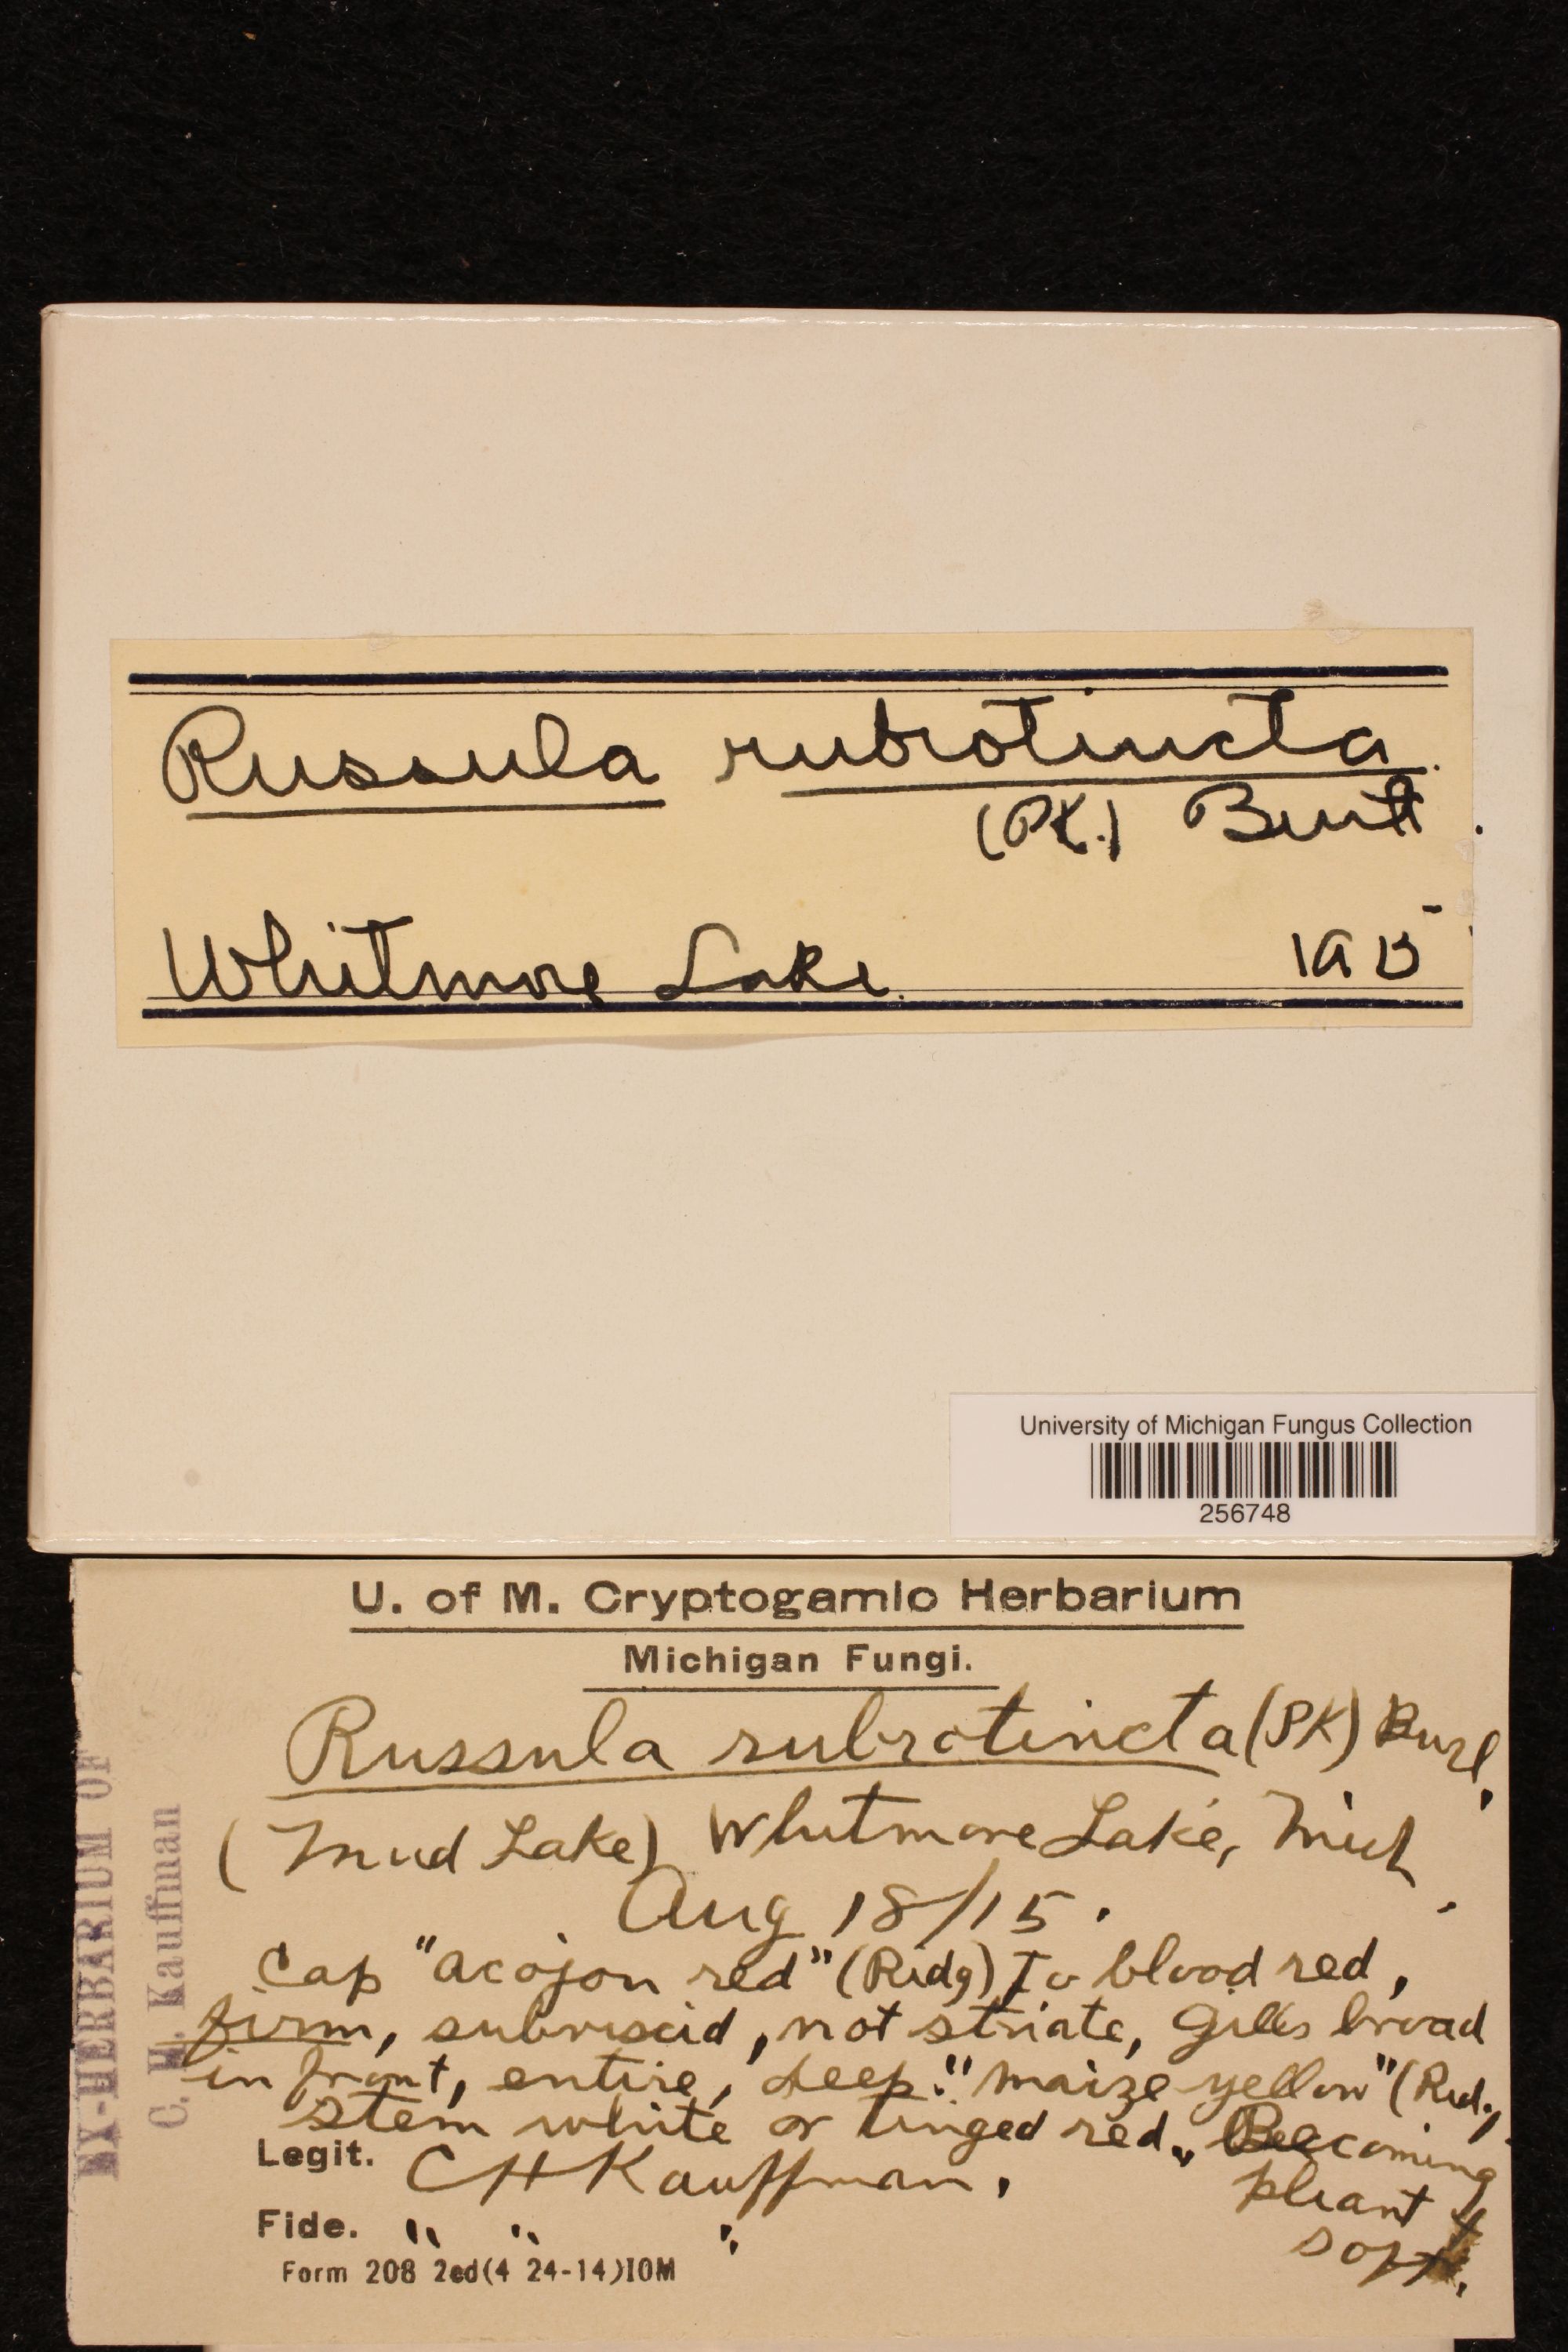 Russula rubrotincta.
(PK.) Burt.
Whitmore Lake. 1915
University of Michigan Fungus Collection
256748
U. of M. Cryptogamic Herbarium
Michigan Fungi.
Russula rubrotincta (PK) Burl.
(Mud Lake) Whitmore Lake, Mich.
Aug 18/15.
Cap "acajou red" (Ridg) to blood red,
firm, subviscid, not striate, Gills broad
in front, entire, deep "maize yellow" (Rid.,
stem white or tinged red, Becoming
pliant +
soft.
Legit. CH Kauffman.
Fide. " " "
Form 208 2ed(4 24-14)10M
EX-HERBARIUM OF
C. H. Kauffman